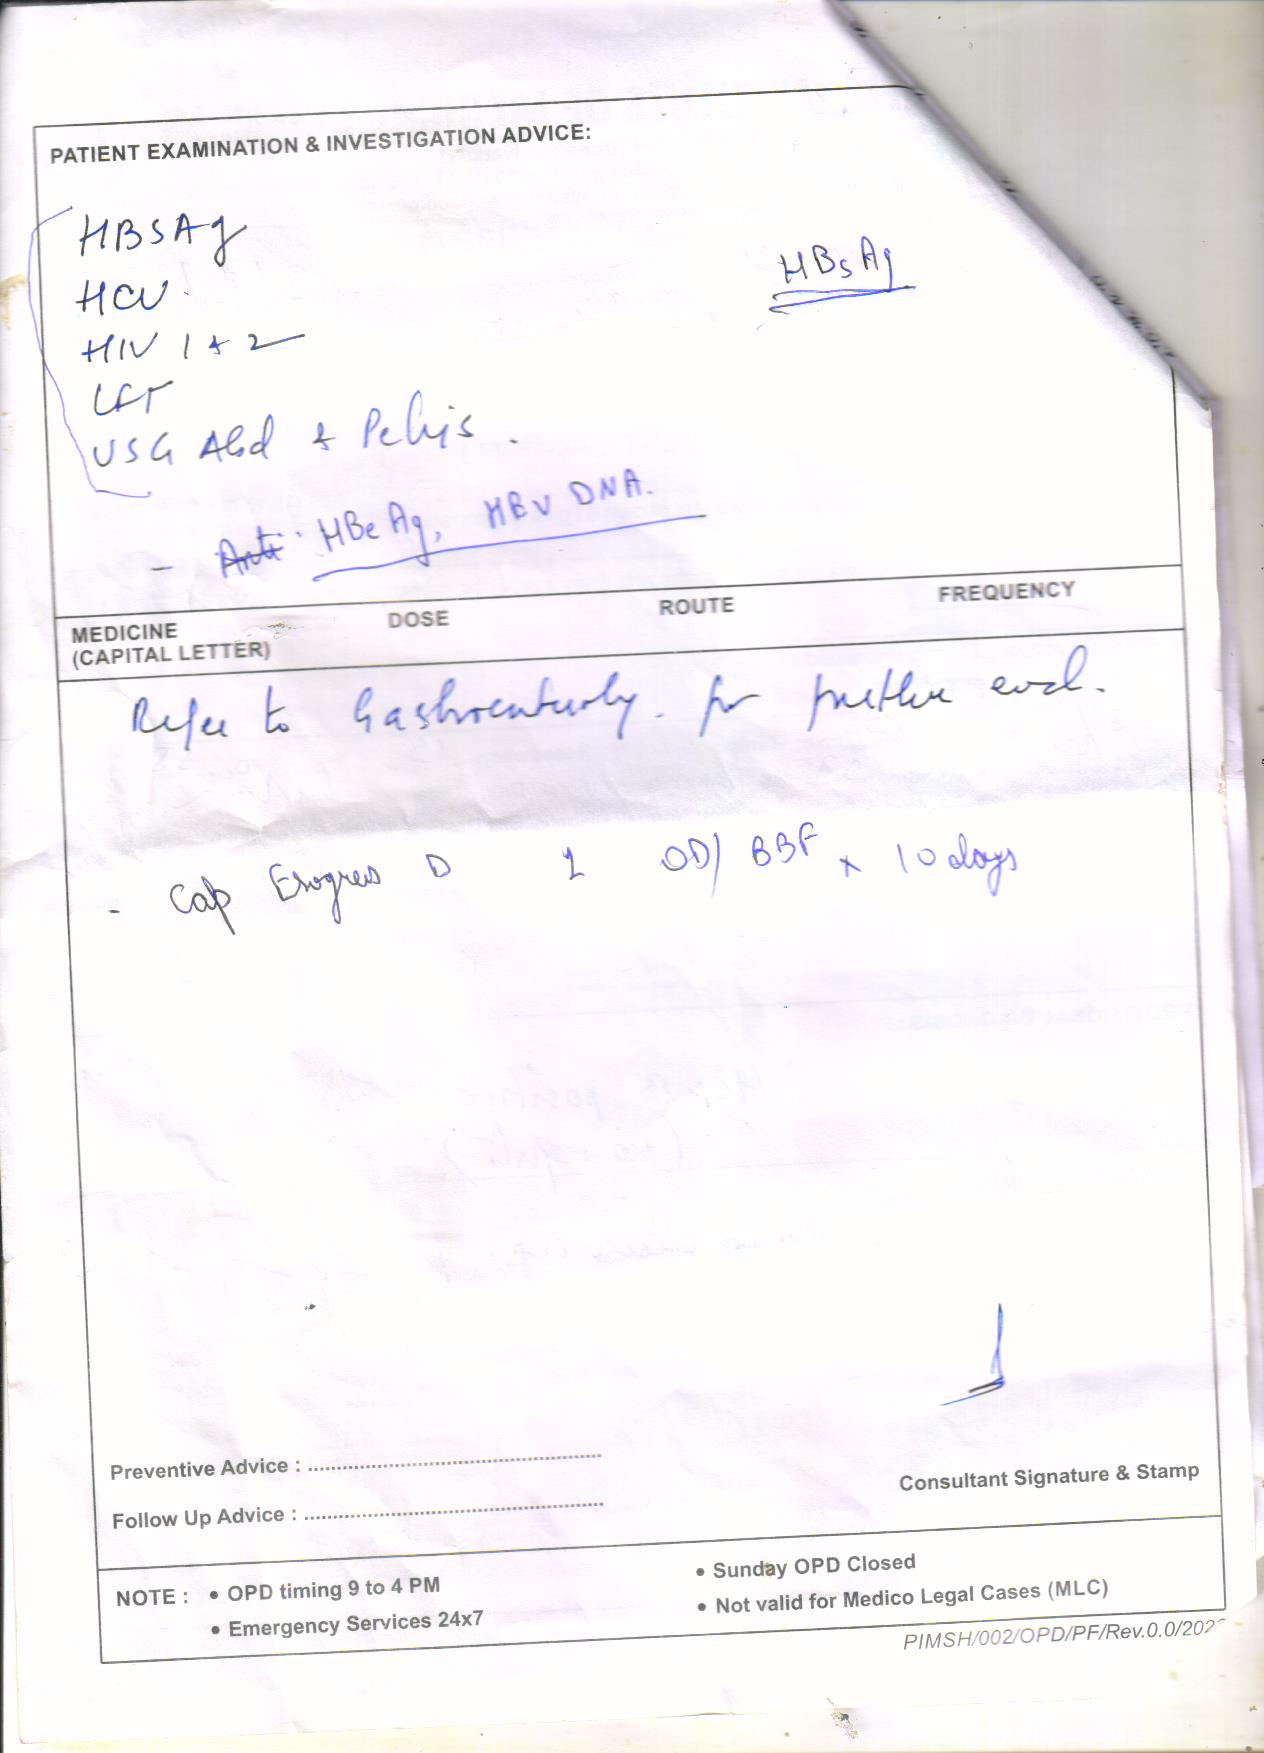 PATIENT EXAMINATION & INVESTIGATION ADVICE:
HBSAg
HBsAg
HCV
HIV 1 & 2
LFT
USG Abd & Pelvis.
- Anti HBeAg, HBV DNA.
MEDICINE DOSE ROUTE FREQUENCY
(CAPITAL LETTER)
Refer to Gastroenterology. for further eval.
- Cap D 1 OD/ BBF x 10 days
Preventive Advice :
Consultant Signature & Stamp
Follow Up Advice :
NOTE : • OPD timing 9 to 4 PM • Sunday OPD Closed
• Emergency Services 24x7 • Not valid for Medico Legal Cases (MLC)
PIMSH/002/OPD/PF/Rev.0.0/202